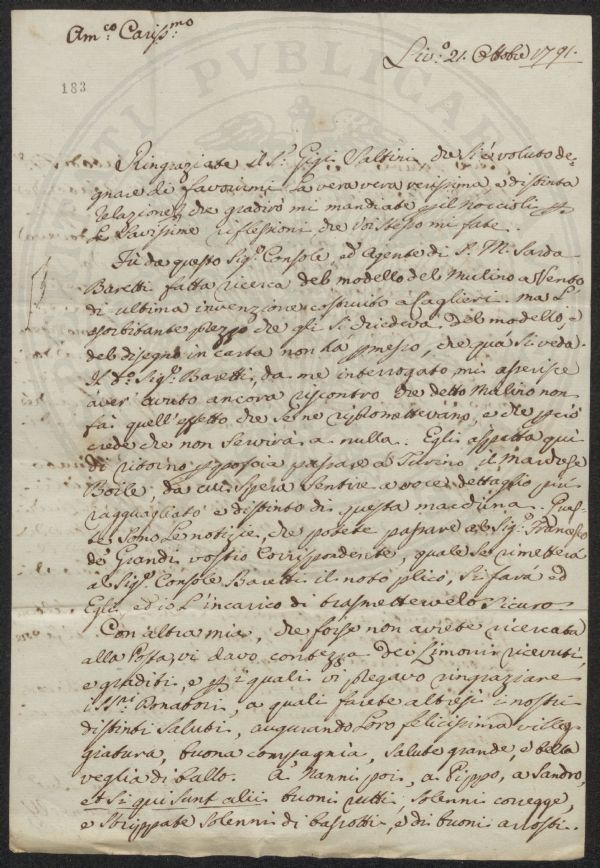 Am.co Cariss.mo
Liv.o 21. Ottobre 1791.
183
Ringraziate il S.r Gigi Saltini, che si è voluto de-
gnare di favorirmi la vera vera verissima, e distinta
relazione, che gradirò mi mandiate il noccioli
le savissime riflessioni che voi stesso mi fate.
Fù da questo Sig.r Console, ed Agente di S. M. Sarda
Baretti fatta ricerca del modello del Mulino a Vento
di ultima invenzione costruito a Caglieri. ma l'
esorbitante prezzo che gli si chiedeva del modello, e
del disegno in carta non hà permesso, che quà si veda.
Il d.o Sig.r Baretti, da me interrogato mi asserisce
aver avuto ancora riscontro che detto Mulino non
fa quell'effetto che se ne ripromettevano, e che perciò
crede che non servirà a nulla. Egli aspetta qui
di ritorno per poscia passare a Turino il Marchese
Boile, da cui spera sentire a voce dettaglio più
ragguagliato e distinto di questa macchina. Ques-
te sono le notizie, che potete passare al Sig.r Francesco
de Grandi vostro Corrispondente, quale se rimetterà
al Sig.r Console Baretti il noto plico, si farà ed
Egli, ed io l'incarico di trasmettervelo sicuro.
Con altra mia, che forse non avrete ricercata
alla Posta, vi davo contezza dei Limoni ricevuti,
e graditi, e per i quali vi pregavo ringraziare
i SS.ri Bonatori, a quali farete altresì i nostri
distinti saluti, augurando Loro felicissima villeg-
giatura, buona compagnia, salute grande, e bella
veglia di ballo. A Nanni poi, a Pippo, a Sandro,
et si qui sunt alii buoni rutti, solenni coregge,
e strippate solenni di basotti, e di buoni arrosti.